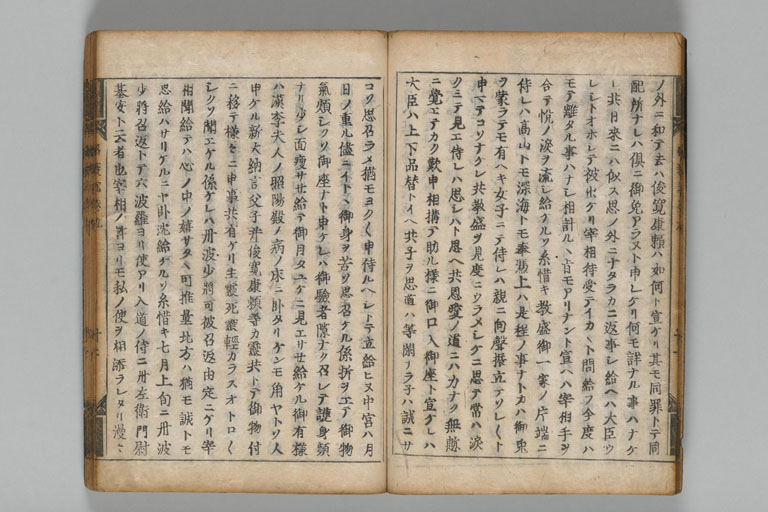 ノ外ニ和テ去ハ俊寛康頼ハ如何ト宣ケリ其モ同罪トテ同
配所ナレハ倶ニ御免アラスト申シケリ何モ詳ナル事ハナケ
共日来ニハ似ス思ノ外ニナタラカニ返事シ給ヘハ大臣ウ
レシトオホシテ被出ケリ宰相待受テイカヽト問給フ今度ハ
モテ離タル事ハナシ相計ルヽ旨モアリナント宣ヘハ宰相手ヲ
合テ悦ノ涙ヲ流シ給ケルソ糸惜キ教盛御一家ノ片端ニ
侍レハ高山トモ深海トモ奉憑上ハ是程ノ事ナトカハ御
ヲ蒙ラテモ有ヘキ女子ニテ侍レハ親ニ向聲振立テソレクト
申ヘテコソナクレ共教盛ヲ見度ニウラメシケニ思テ常ハ涙
クミテ見エ侍レハ思シハト思ヘ共恩愛ノ道ニハ力ナク無慙
ニ覺エテカク歎申相構テ助ル様ニ御口入御座ト宣ケレハ
大臣ハ上下品替トイヘ共子ヲ思道ハ等閑ナラ子ハ誠ニサ
コソ思召ラメ猶モヨクヽ申侍ルヘシトテ立給ヒヌ中宮ハ月
日ノ重ル儘ニイトヽ御身ヲ苦ソ思召ケル係折ヲエテ御物
氣頗シクソ御座ナト申ケレハ御驗者隙ナク召レテ護身頻
ナリ少シ面痩サセ給テ御月タユケニ見エサセ給ケル御有様
ハ漢李夫人ノ照陽殿ノ病ノ床ニ臥タリケンモ角ヤトソ人
申ケル新大納言父子并俊寛康頼等カ靈共トテ御物付
ニ移テ様々ニ申事共有ケリ生靈死靈輕カラスオトロ〱
シクソ聞エケル係ケレハ丹波少將可被召返由定ニケリ宰
相聞給テハ心ノ中ノ嬉サタヽ可推量北方ハ猶モ誠トモ
思給ハサリケルニヤ臥沈給ケルソ糸惜キ七月上旬ニ丹波
少將召返トテ六波羅ヨリ使アリ入道ノ侍ニ丹左衛門尉
基安ト云者也宰相ノ許ヨリモ私ノ使ヲ相添ラレタリ漫々